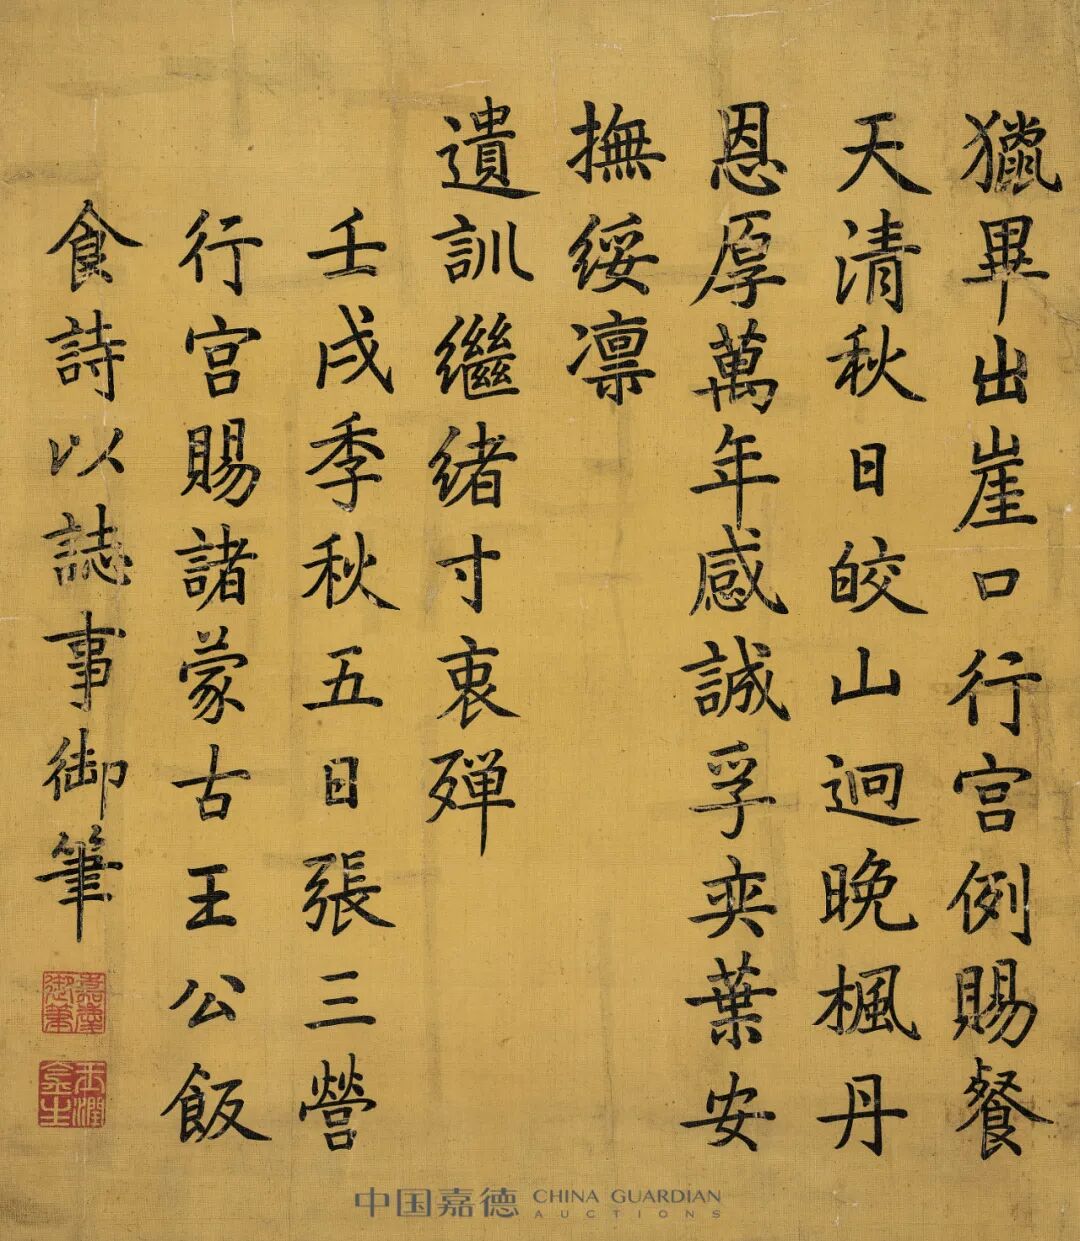 獵畢出崖口行宮例賜餐
天清秋日皎山迥晚楓丹
恩厚萬年感誠孚奕葉安
撫綏凛
遺訓繼緒寸衷殫
壬戌季秋五日張三營
行宮賜諸蒙古王公飯
食詩以誌事御筆
嘉慶御筆
玉潤金生
中国嘉德 CHINA GUARDIAN
AUCTIONS